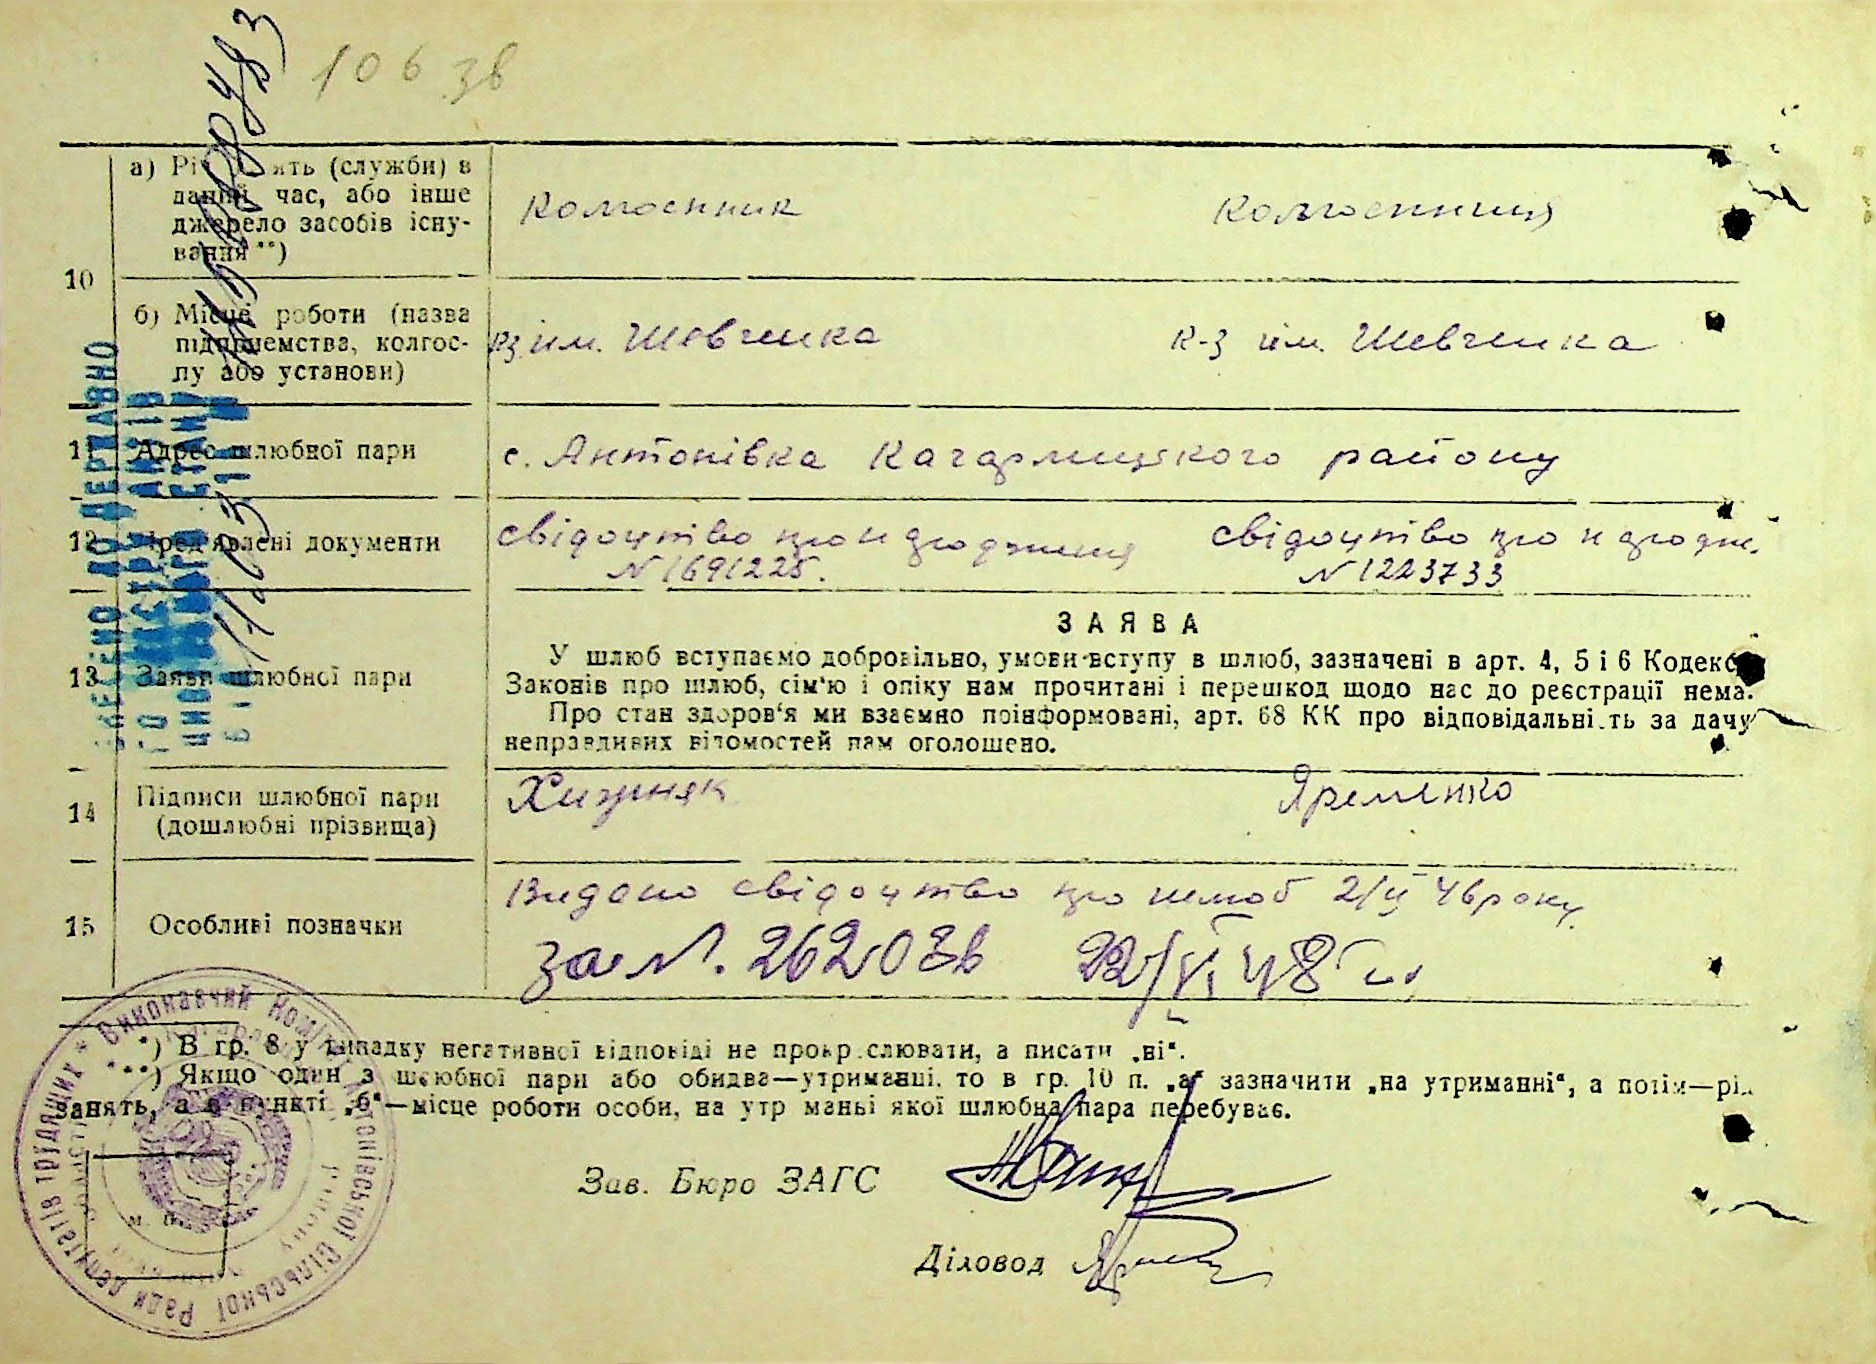 106 зв
10
а) Рід занять (служби) в
даний час, або інше
джерело засобів існу-
вання**)
Колгоспник
Колгоспниця
б) Місце роботи (назва
підприємства, колгос-
пу або установи)
к-з им. Шевченка
к-з им. Шевченка
11
Адреса шлюбної пари
с. Антонівка Кагарлицького району
12
Пред'явлені документи
свідоцтво про народження
№ 1691225.
свідоцтво про народж.
№ 1223733
13
Заяви шлюбної пари
ЗАЯВА
У шлюб вступаємо добровільно, умови вступу в шлюб, зазначені в арт. 4, 5 і 6 Кодексу
Законів про шлюб, сім'ю і опіку нам прочитані і перешкод щодо нас до реєстрації нема.
Про стан здоров'я ми взаємно поінформовані, арт. 68 КК про відповідальність за дачу
неправдивих відомостей нам оголошено.
14
Підписи шлюбної пари
(дошлюбні прізвища)
Хижняк
Яременко
15
Особливі позначки
Видано свідоцтво про шлюб 2/II 46 року.
за №. 262038
22/VI 48
*) В гр. 8 у випадку негативної відповіді не прокреслювати, а писати „ні“.
**) Якщо один з шлюбної пари або обидва—утриманці, то в гр. 10 п. „а“ зазначити „на утриманні“, а потім—рід
занять, а в пункті „б“—місце роботи особи, на утриманні якої шлюбна пара перебуває.
Зав. Бюро ЗАГС
Діловод
м. п.
Виконавчий Комітет Антонівської Сільської Ради депутатів трудящих
ВНЕСЕНО ДО ДЕРЖАВНО
ГО РЕЄСТРУ АКТІВ
ЦИВІЛЬНОГО СТАНУ